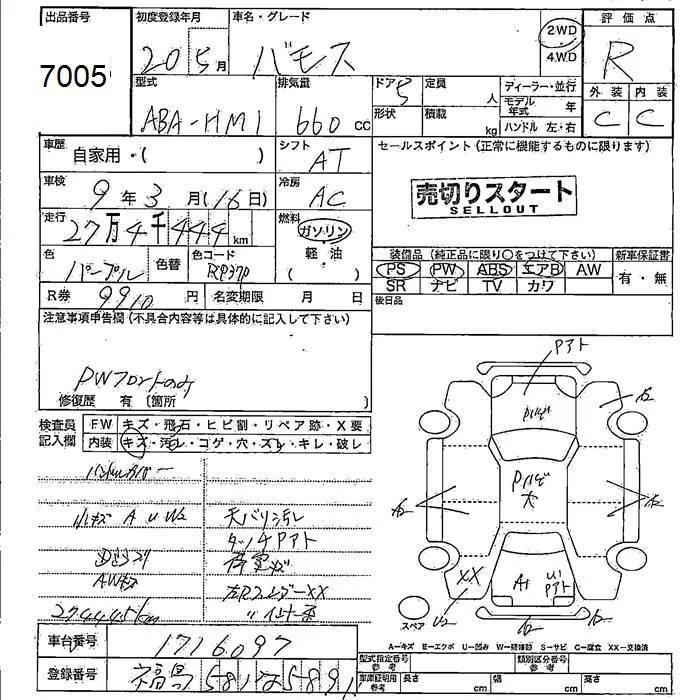 出品番号 初度登録年月 車名・グレード 評価点
7005 20 5月 バモス 2WD R
4.W.D
型式 排気量 ドア 5 定員 人 ディーラー・並行 外装 内装
ABA-HM1 660 cc 形状 積載 kg モデル年式 年 C C
ハンドル 左・右
車歴 自家用・( ) シフト AT セールスポイント (正常に機能するものに限ります)
車検 9年3月(16日) 冷房 AC 売切りスタート
SELLOUT
走行 27万4千444km 燃料 ガソリン
軽・油
( )
装備品 (純正品に限り○をつけて下さい) 新車保証書
色 パープル 色替 色コード RP37P PS PW ABS エアB AW 有・無
SR ナビ TV カワ
R券 9910円 名変期限 月 日 後日品
注意事項申告欄 (不具合内容等は具体的に記入して下さい)
PWフロントのみ
修復歴 有 〔箇所 〕
検査員記入欄 FW キズ・飛石・ヒビ割・リペア跡・X要
内装 キズ・汚レ・コゲ・穴・ズレ・キレ・破レ
ハンドルカバー
小キズ A U W2 天バリ汚レ
タッチPアト
AWキズ
274445km
Pアト
Pハゲ
Pハゲ
大
A2
A2
A2
XX
U2
A1
U1
Pアト
A2
A2
スペア
A=キズ E=エクボ U=凹み W=補修跡 S=サビ C=腐食 XX=交換済
車台番号 1716097 型式指定番号 参考 類別区分番号 参考
登録番号 福島581 車庫証明用 参考 長さ cm 幅 cm 高さ cm